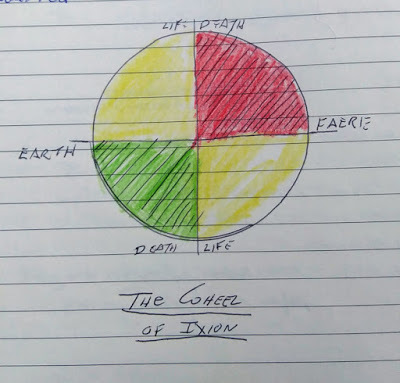 LIFE DEATH
FAERIE
EARTH
DEATH LIFE
THE WHEEL
OF IXION